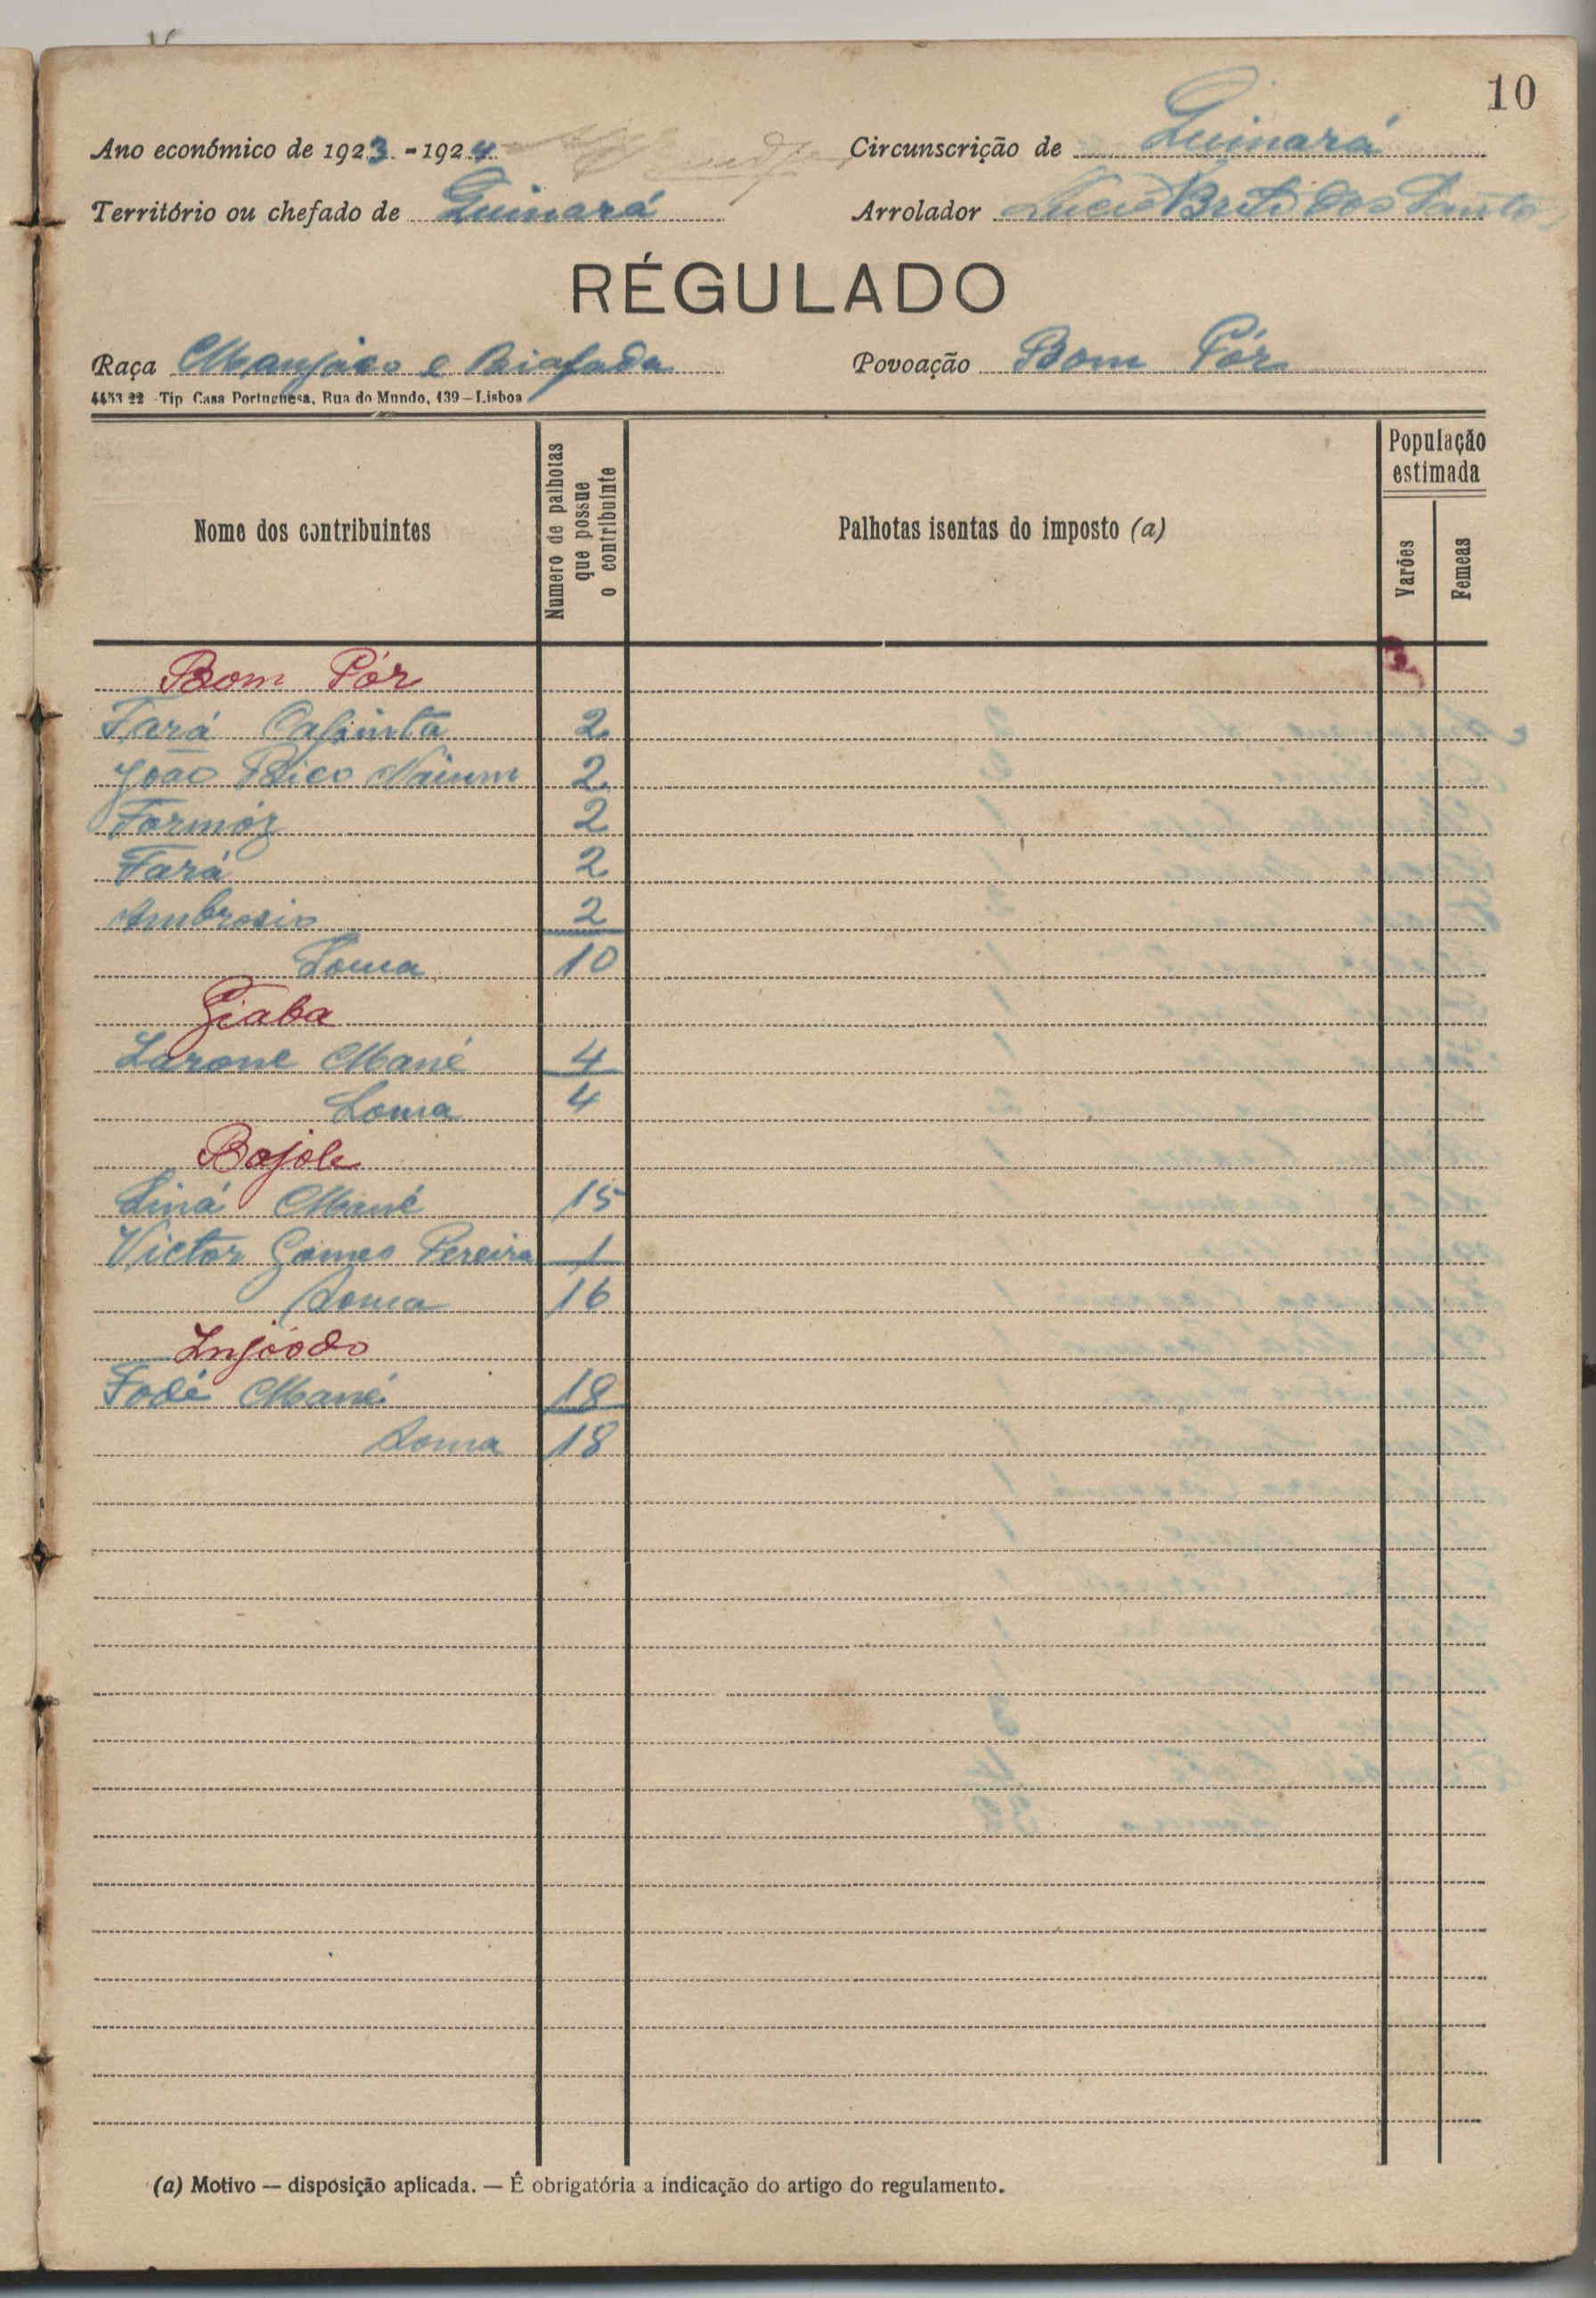 10
Ano económico de 1923-1924 Circunscrição de Quinará
Território ou chefado de Quinará Arrolador Brito dos Santos
RÉGULADO
Raça Manjaco e Biafada Povoação Bom Pór
4453 22 - Tip Casa Portuguesa, Rua do Mundo, 139-Lisboa
Nome dos contribuintes Numero de palhotas que possue o contribuinte Palhotas isentas do imposto (a) População estimada Varões Femeas
Bom Pór
Fará Cafinta 2
João Bico Naium 2
Formóz 2
Fará 2
Ambrosio 2
Soma 10
Giaba
Larone Mané 4
Soma 4
Bojole
Siná Mané 15
Victor Gomes Pereira 1
Soma 16
Injoodo
Fodé Mané 18
Soma 18
(a) Motivo — disposição aplicada. — É obrigatória a indicação do artigo do regulamento.